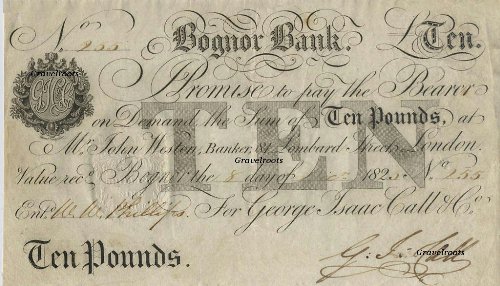 No. 255 Bognor Bank. £Ten.
Gravelroots
I Promise to pay the Bearer
on Demand, the Sum of Ten Pounds, at
Mr. John Weston, Banker, 81 Lombard Street, London.
Gravelroots
Value recd. Bognor the 8 day of 182 No. 255
TEN
Entd. W. W. Phillips For George Isaac Call & Co.
Ten Pounds. G. Is. Call
Gravelroots